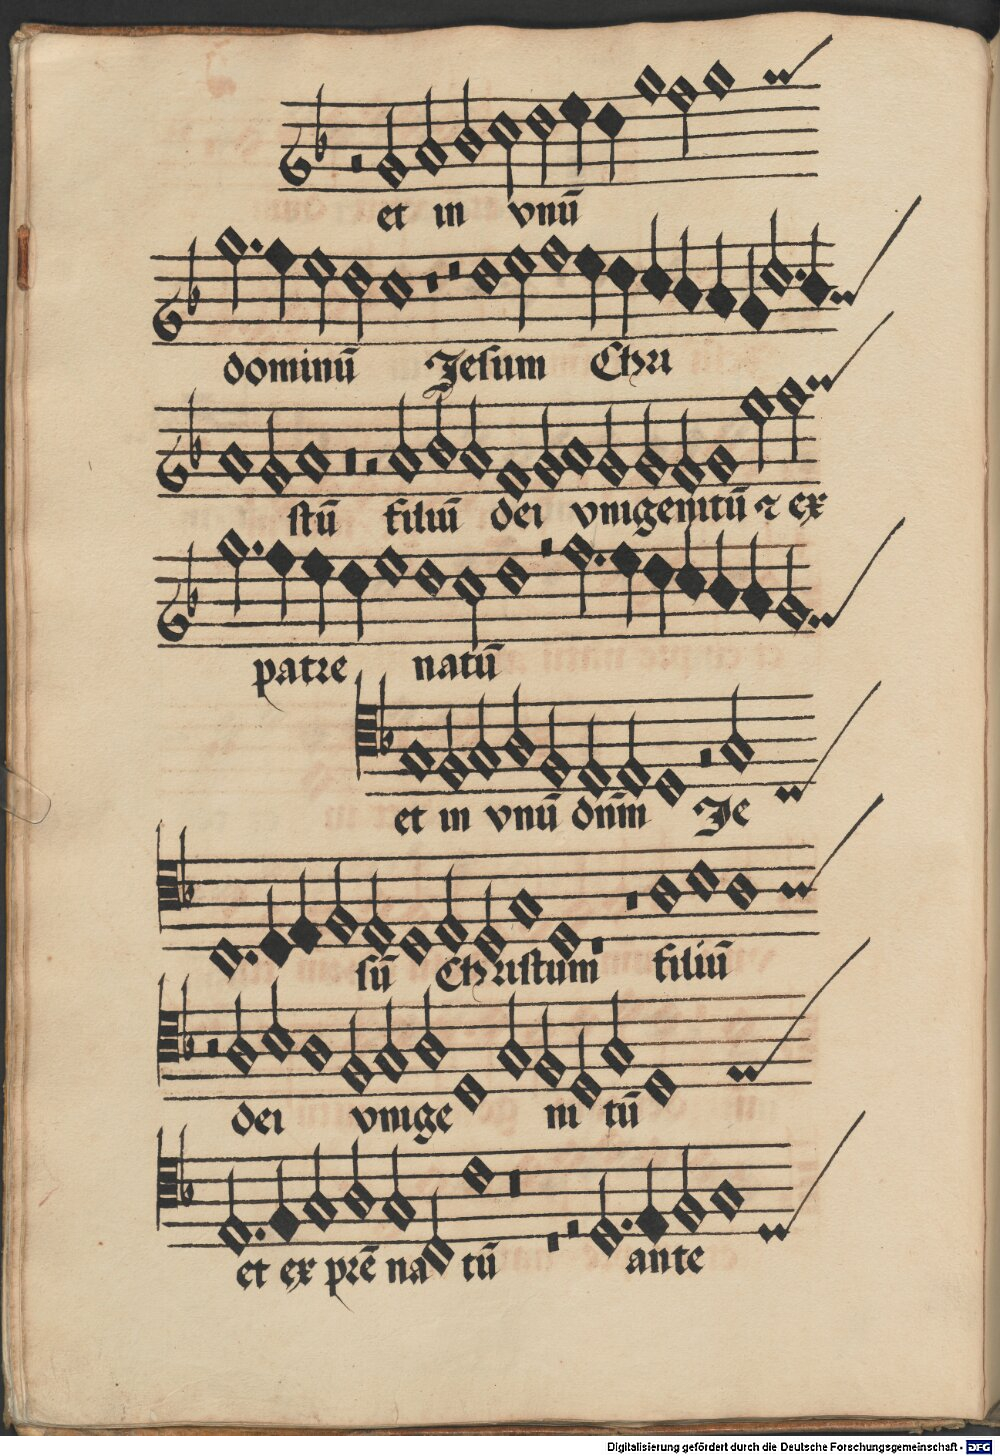 et in vnū
dominū Jesum Chri
stū filiū dei vnigenitū ⁊ ex
patre natū
et in vnū dn̄m Je
sū Christum filiū
dei vnige ni tū
et ex prē na tū ante
Digitalisierung gefördert durch die Deutsche Forschungsgemeinschaft - DFG